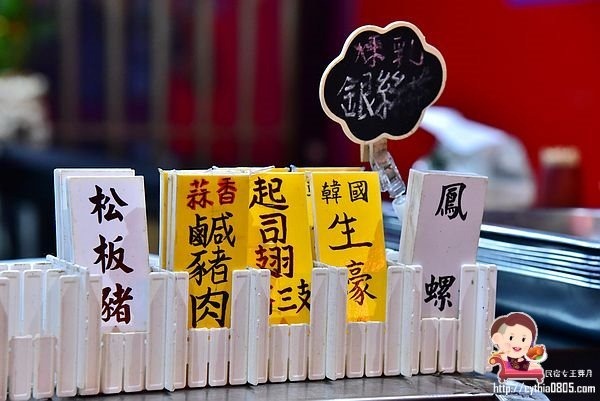 煉乳
銀絲
松板豬
蒜香
鹹豬肉
起司翅
三支
韓國
生
豪
鳳
螺
民宿女王芽月
http://cythia0805.com